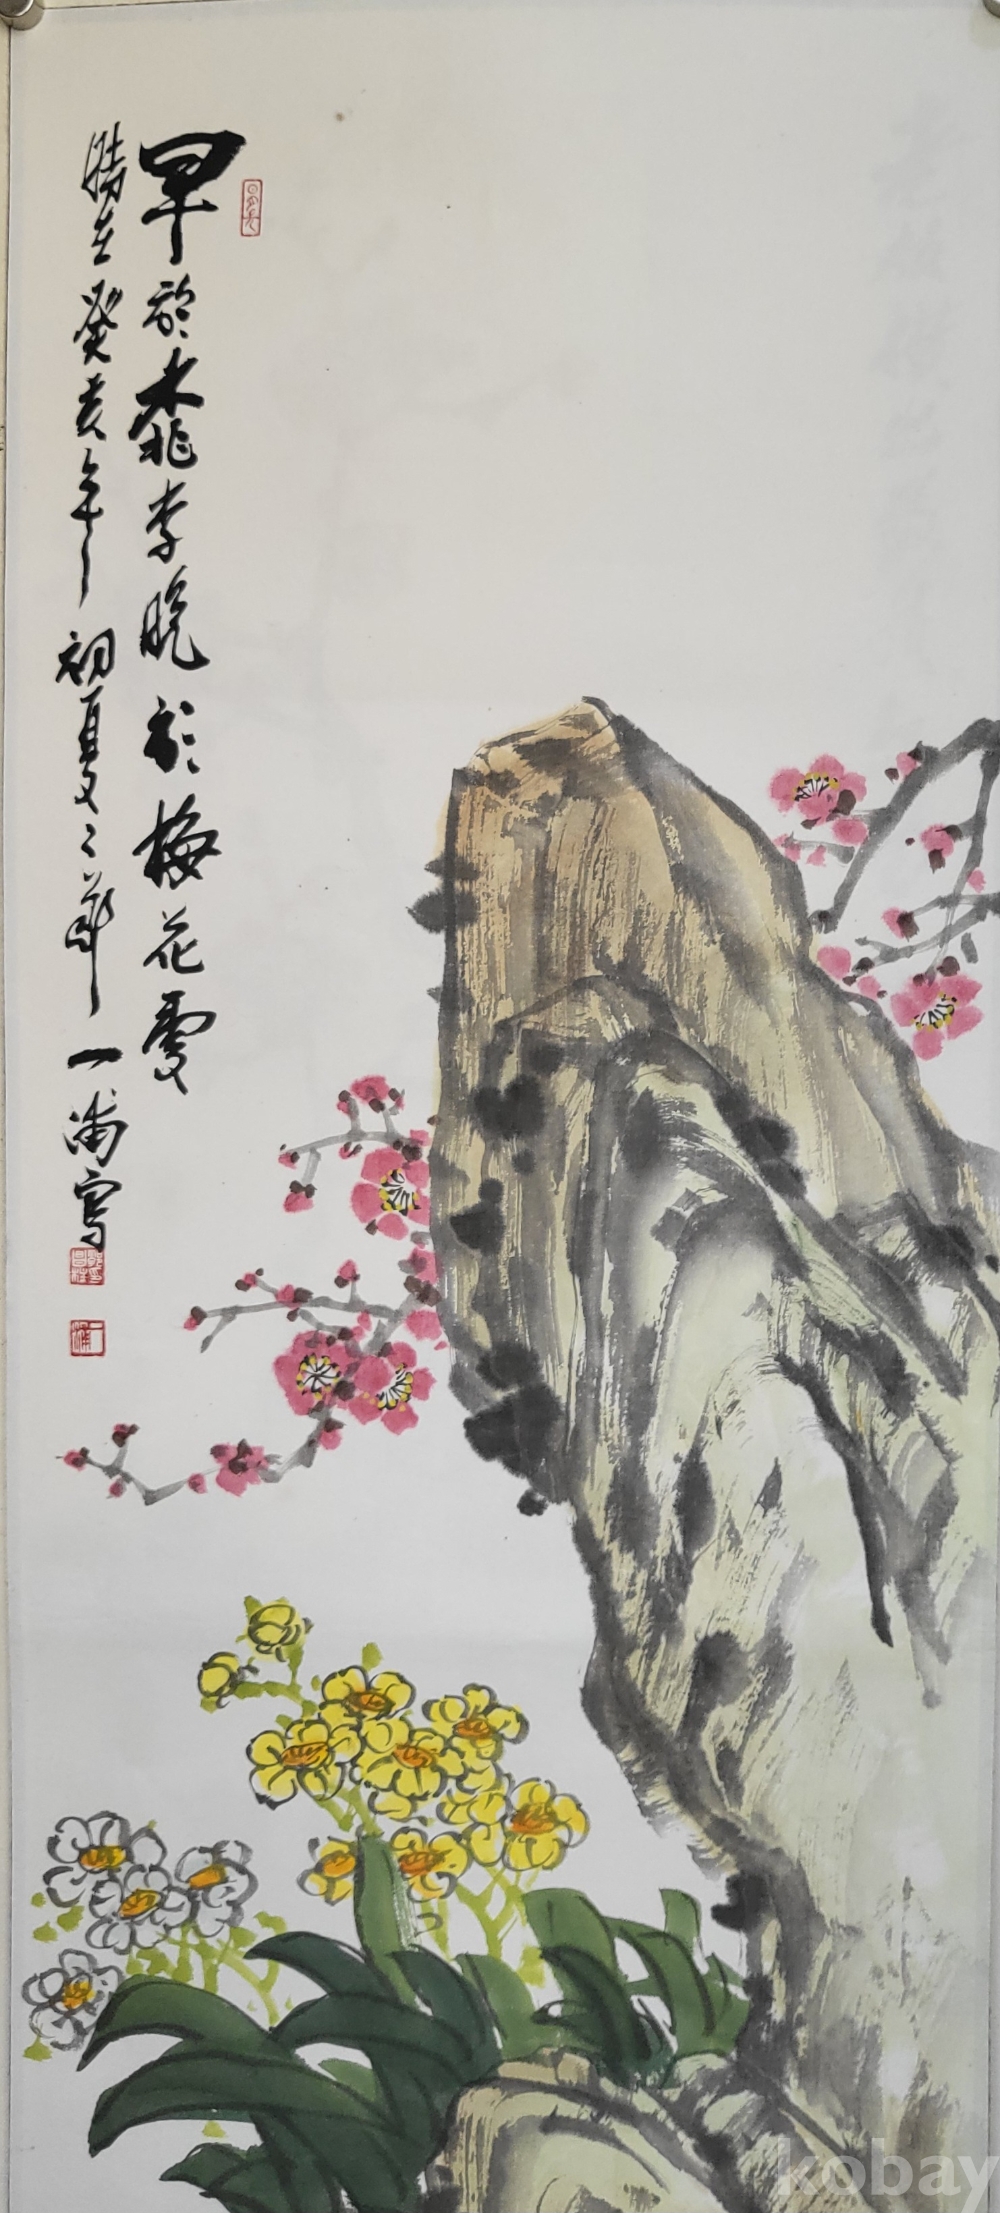 早於桃李晚於梅花
在癸亥年初夏之 一浦寫
kobay